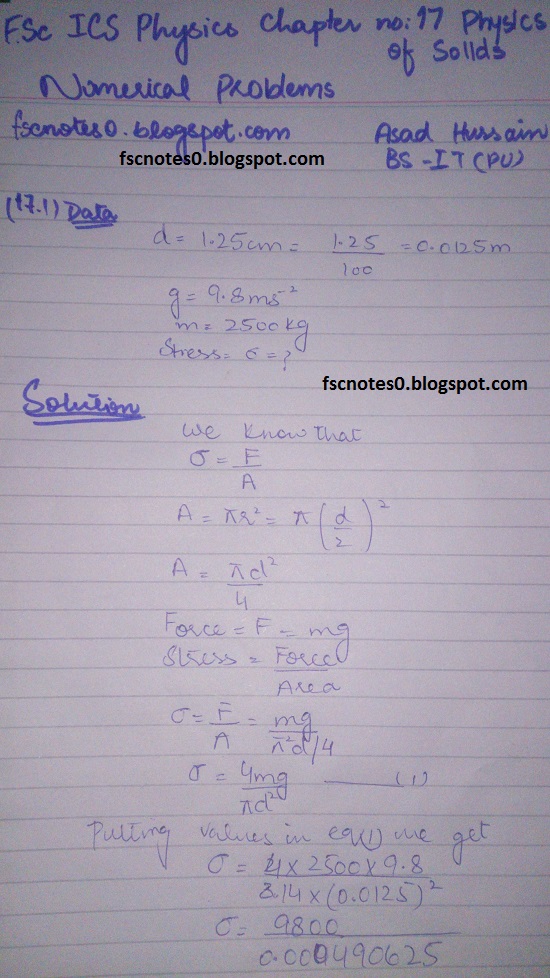 F.Sc ICS Physics Chapter no: 17 Physics
of Solids
Numerical Problems
fscnotes0.blogspot.com Asad Hussain
fscnotes0.blogspot.com BS-IT (PU)
(17.1) Data
d = 1.25cm = 1.25/100 = 0.0125m
g = 9.8ms⁻²
m = 2500kg
Stress = σ = ?
fscnotes0.blogspot.com
Solution
We Know that
σ = F/A
A = πr² = π(d/2)²
A = πd²/4
Force = F = mg
Stress = Force/Area
σ = F/A = mg/π²d/4
σ = 4mg/πd² —— (1)
Putting values in eq(1) we get
σ = 4 x 2500 x 9.8/3.14 x (0.0125)²
σ = 9800/0.000490625